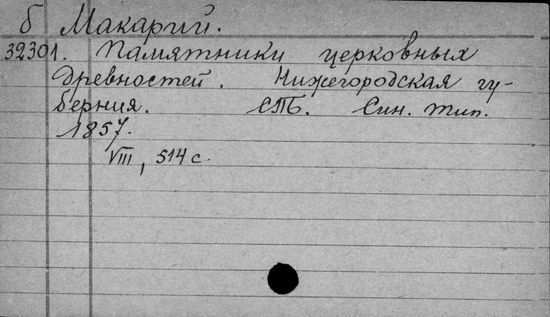 б Макарий.
32301. Памятники церковных
древностей. Нижегородская гу-
берния. СПБ. Син. тип.
1857.
VIII, 514 с.